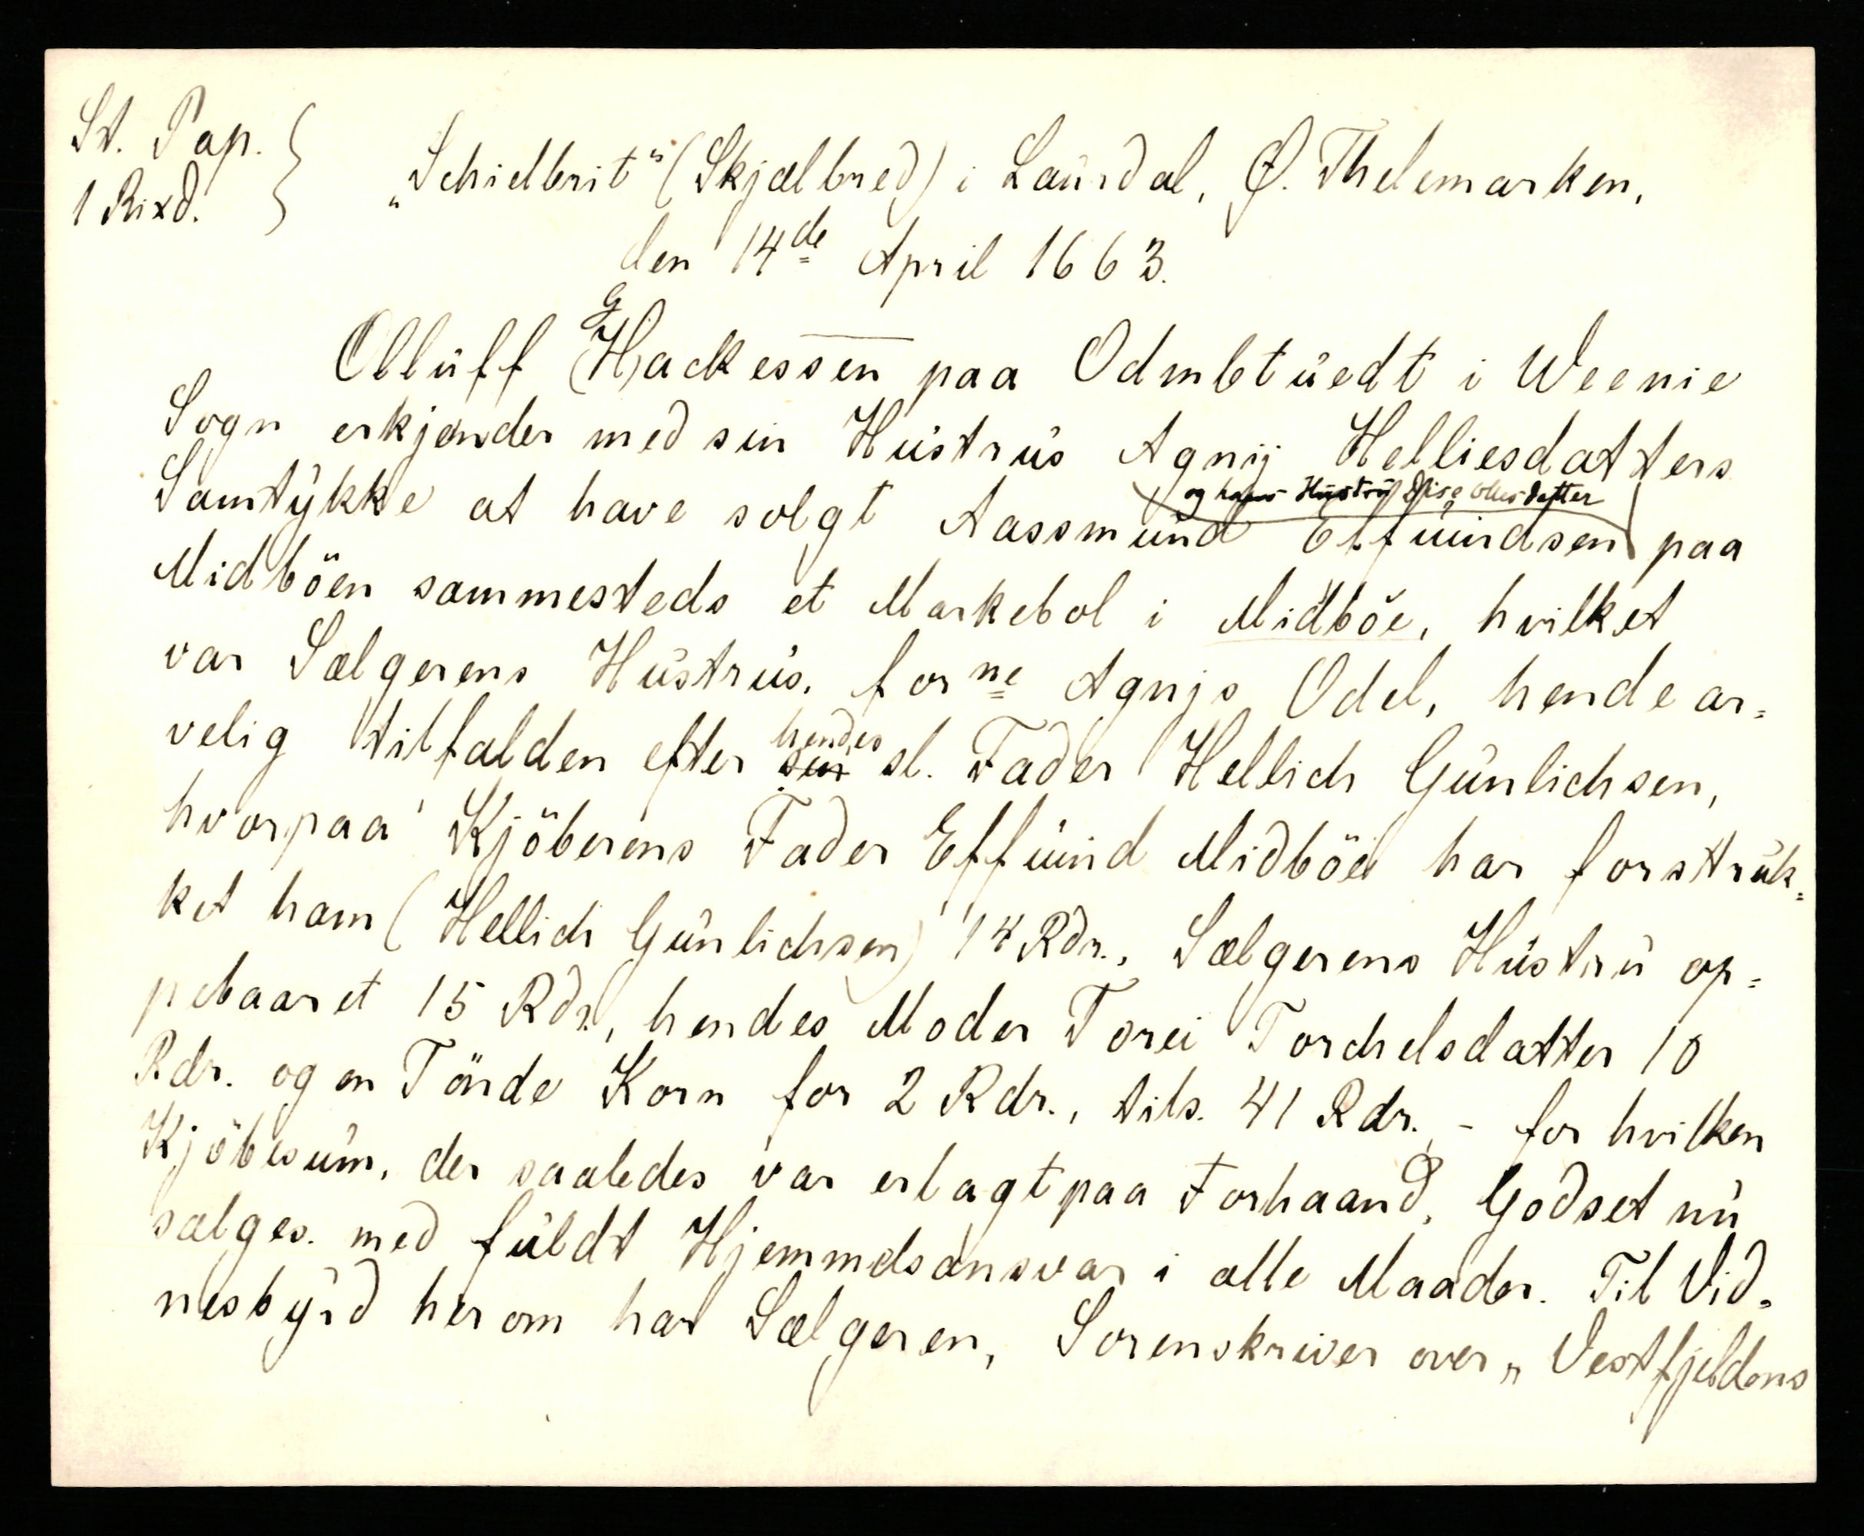 St. Pap.
1 Rixd.
„Schielbrit“ (Skjælbred) i Laurdal, Ø. Thelemarken,
den 14de April 1663.
G
Olluff (H)ackessen paa Odmbtuedt i Weenie
Sogn erkjender med sin Hustrus Agnij Helliesdatters
og hans Hustru Olusdatter
Samtykke at have solgt Aassmund Effuindsen paa
Midböen sammesteds et Markebol i Midböe, hvilket
var Sælgerens Hustrus, forne Agnijs Odel, hende ar-
hendes
velig tilfalden efter sin sl. Fader Hellich Gunlichsen,
hvorpaa Kjöberens Fader Effuind Midböe har forstruk-
ket ham (Hellich Gunlichsen) 14 Rdr., Sælgerens Hustru op-
pebaaret 15 Rdr., hendes Moder Torei Torchelsdatter 10
Rdr. og en Tönde Korn for 2 Rdr., tils. 41 Rdr., - for hvilken
Kjöbesum, der saaledes var erlagt paa Forhaand, Godset nu
sælges med fuldt Hjemmelsansvar i alle Maader. Til Vid-
nesbyrd herom har Sælgeren, Sorenskriver over „Vestfjeldens